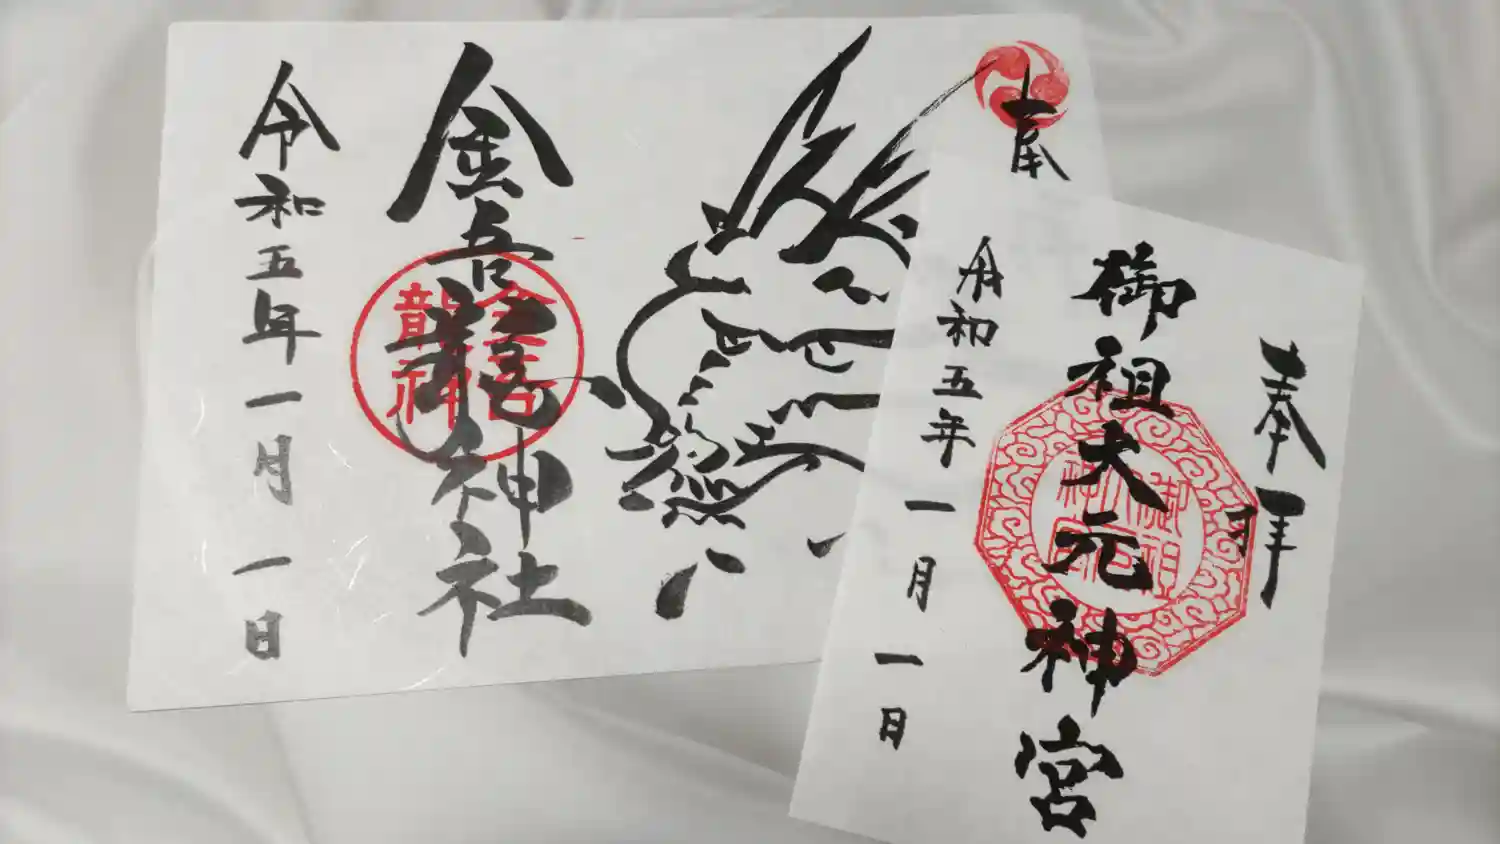 奉
金吾龍神社
令和五年一月一日
金吾
龍神
奉拝
御祖大元神宮
令和五年一月一日
御祖
大元
神宮